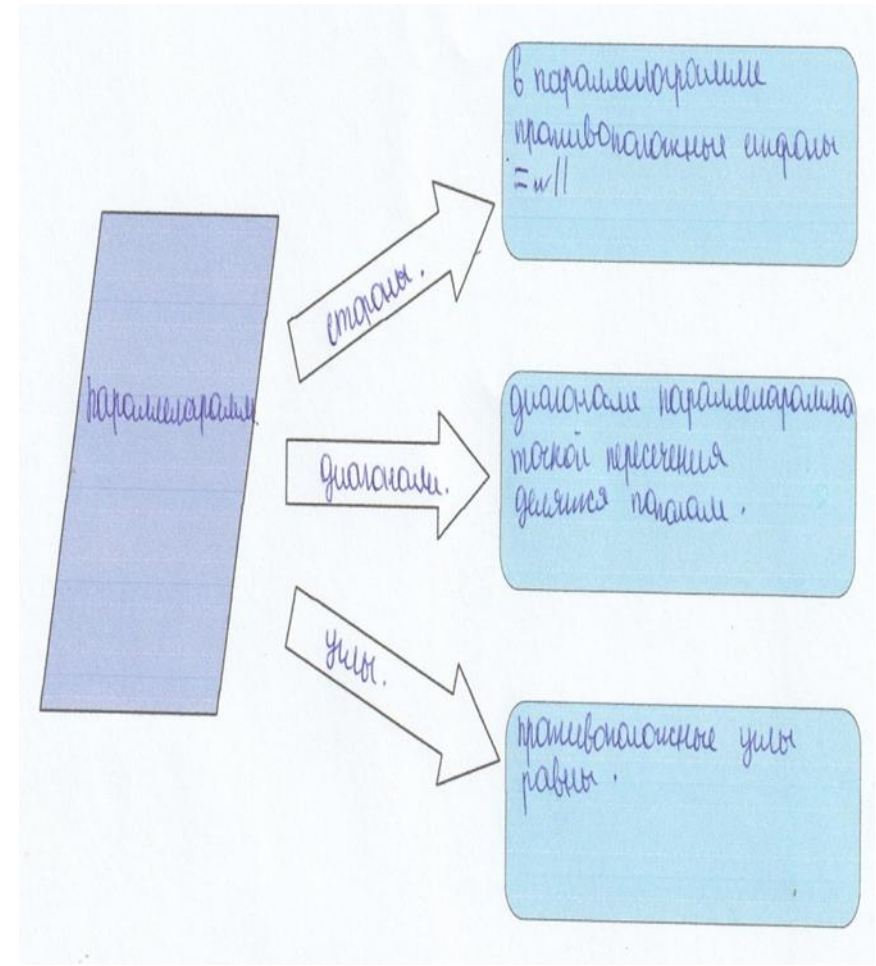 параллелограмм
стороны.
в параллелограмме
противоположные стороны
= и ||
диагонали.
диагонали параллелограмма
точкой пересечения
делятся пополам.
углы.
противоположные углы
равны.